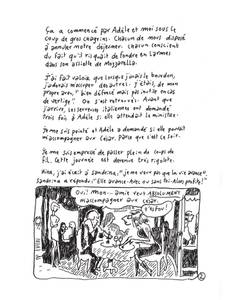 Ça a commencé par Adèle et moi sous le
coup de gros chagrins. Chacun de nous disposé
à annuler notre déjeuner. Chacun conscient
du fait qu'il risquait de fondre en larmes
dans son assiette de Mozzarella.
J'ai fait valoir que lorsque j'avais le bourdon,
j'adorais m'occuper des autres. J'étais, de mon
propre aveu, "bien défoncé mais pas inutile en cas
de vertige". On s'est retrouvés. Avant que
j'arrive, les serveurs italiens ont demandé
trois fois à Adèle si elle attendait le ministre.
Je me suis pointé et Adèle a demandé si elle pouvait
m'accompagner aux César, parce que c'est le soir.
Je me suis empressé de passer plein de coups de
fil. Cette journée est devenue très rigolote.
Hier, j'ai écrit à Sandrina, "je ne veux pas que la vie avance".
Sandrina a répondu : "Elle avance. Avec ou sans toi. Alors profite !"
Oui ! Mon amie veut ABSOLUMENT
m'accompagner aux César.
T'es fou !